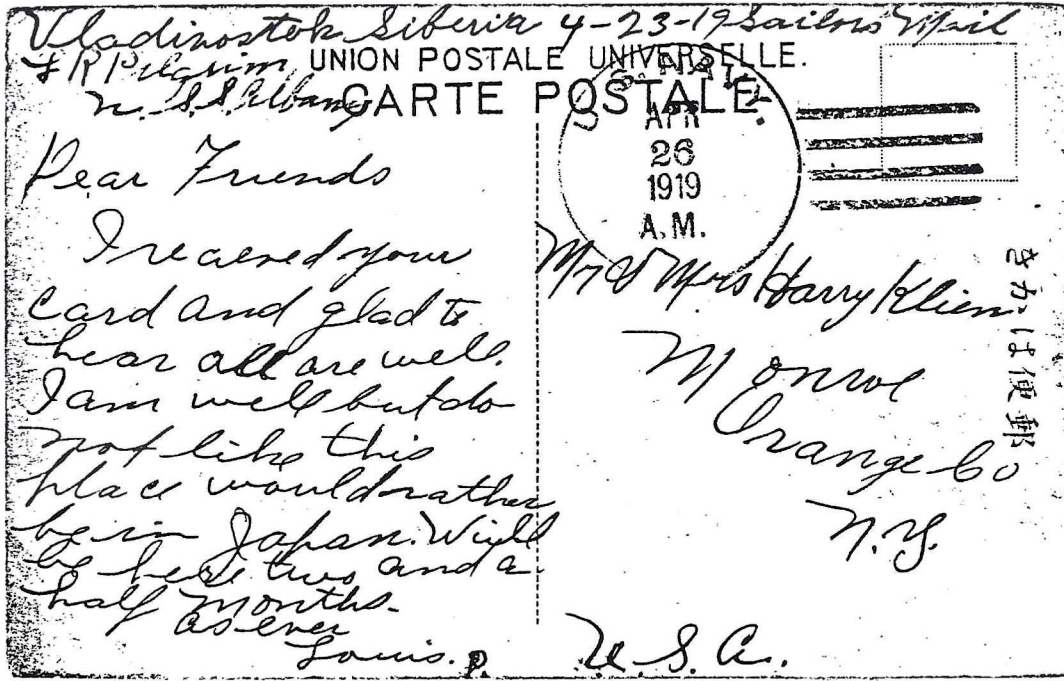 Vladivostok Siberia 4-23-19 Sailors Mail
L R Pilgrim
U.S.S. Albany
UNION POSTALE UNIVERSELLE.
CARTE POSTALE
U.S. NAVY.
APR
26
1919
A.M.
Dear Friends
I recieved your
card and glad to
hear all are well.
I am well but do
not like this
place would rather
be in Japan. Will
be here two and a
half months-
as ever
Louis. P.
Mr & Mrs Harry Klien
Monroe
Orange Co
N.Y.
U.S.A.
きかは便郵